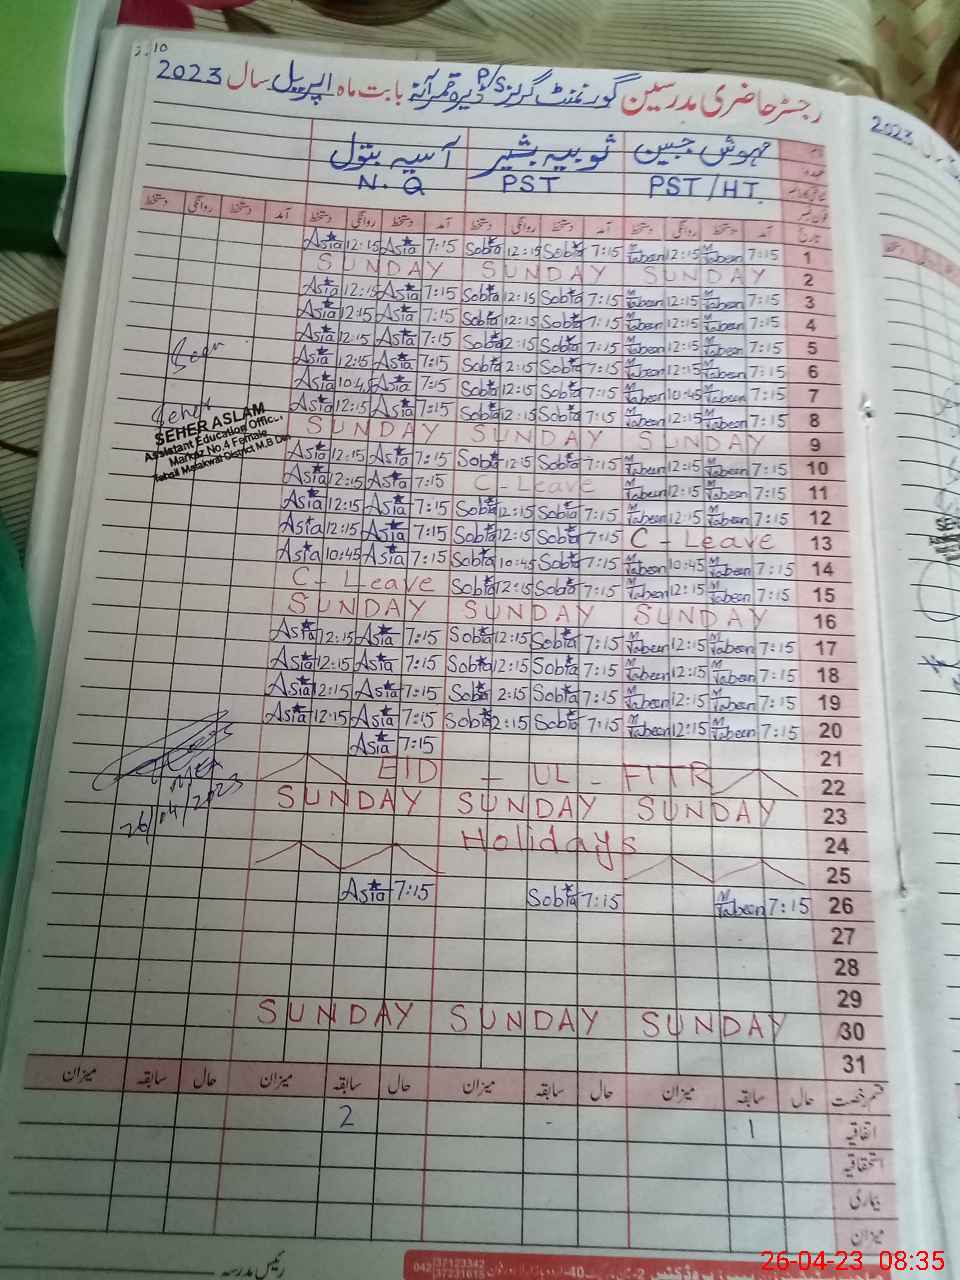 رجسٹر حاضری مدرسین گورنمنٹ گرلز P/S ڈیرہ بابت ماہ اپریل سال 2023
مہوش جبین ثوبیہ بشیر آسیہ بتول
PST/HT PST N. Q
تاریخ آمد دستخط روانگی دستخط آمد دستخط روانگی دستخط آمد دستخط روانگی دستخط آمد دستخط روانگی دستخط
1 7:15 M Tabeen 12:15 M Tabeen 7:15 Sobia 12:15 Sobia 7:15 Asia 12:15 Asia
2 SUNDAY SUNDAY SUNDAY
3 7:15 M Tabeen 12:15 M Tabeen 7:15 Sobia 12:15 Sobia 7:15 Asia 12:15 Asia
4 7:15 M Tabeen 12:15 M Tabeen 7:15 Sobia 12:15 Sobia 7:15 Asia 12:15 Asia
5 7:15 M Tabeen 12:15 M Tabeen 7:15 Sobia 12:15 Sobia 7:15 Asia 12:15 Asia
6 7:15 M Tabeen 12:15 M Tabeen 7:15 Sobia 2:15 Sobia 7:15 Asia 12:15 Asia
7 7:15 M Tabeen 10:45 M Tabeen 7:15 Sobia 12:15 Sobia 7:15 Asia 10:45 Asia
8 7:15 M Tabeen 12:15 M Tabeen 7:15 Sobia 12:15 Sobia 7:15 Asia 12:15 Asia
SEHER ASLAM
Assistant Education Officer
Markaz No.4 Female
Tehsil Malakwal District M.B.Din
9 SUNDAY SUNDAY SUNDAY
10 7:15 M Tabeen 12:15 M Tabeen 7:15 Sobia 12:15 Sobia 7:15 Asia 12:15 Asia
11 7:15 M Tabeen 12:15 M Tabeen C-Leave 7:15 Asia 12:15 Asia
12 7:15 M Tabeen 12:15 M Tabeen 7:15 Sobia 12:15 Sobia 7:15 Asia 12:15 Asia
13 C-Leave 7:15 Sobia 12:15 Sobia 7:15 Asia 12:15 Asia
14 7:15 M Tabeen 10:45 M Tabeen 7:15 Sobia 10:45 Sobia 7:15 Asia 10:45 Asia
15 7:15 M Tabeen 12:15 M Tabeen 7:15 Sobia 12:15 Sobia C-Leave
16 SUNDAY SUNDAY SUNDAY
17 7:15 M Tabeen 12:15 M Tabeen 7:15 Sobia 12:15 Sobia 7:15 Asia 12:15 Asia
18 7:15 M Tabeen 12:15 M Tabeen 7:15 Sobia 12:15 Sobia 7:15 Asia 12:15 Asia
19 7:15 M Tabeen 12:15 M Tabeen 7:15 Sobia 2:15 Sobia 7:15 Asia 12:15 Asia
20 7:15 M Tabeen 12:15 M Tabeen 7:15 Sobia 12:15 Sobia 7:15 Asia 12:15 Asia
21 7:15 Asia
22 EID - UL - FITR
23 SUNDAY SUNDAY SUNDAY
MEA
26/04/2023
24 Holidays
25
26 7:15 M Tabeen 7:15 Sobia 7:15 Asia
27
28
29
30 SUNDAY SUNDAY SUNDAY
31
قسم رخصت حال سابقہ میزان حال سابقہ میزان حال سابقہ میزان حال سابقہ میزان
اتفاقیہ 1 - 2
استحقاقیہ
بیماری
میزان
رئیس مدرسہ
042 37123342
37231615
26-04-23 08:35
2023